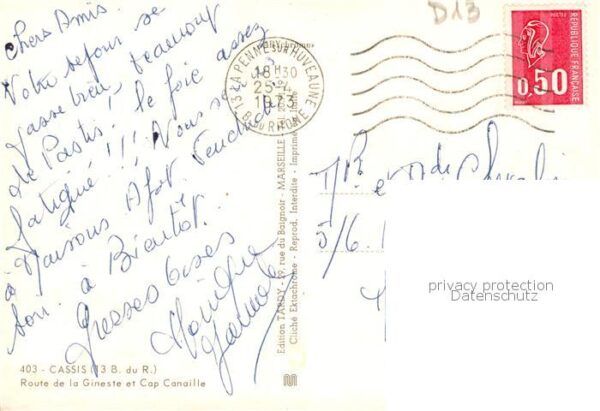 Chers Amis.
Notre séjour se
passe bien, beaucoup
de Pastis! le foie assez
fatigué!!! Nous se
à Maisons Vendredi
ton. à Bientôt.
Grosses bises
Monique
D13
13 LA PENNE SUR HUVEAUNE
18H30
25-4
1973
B. DU RHONE
REPUBLIQUE FRANÇAISE
0,50
5/6.
privacy protection
Datenschutz
Edition TARDY - 29, rue du Baignoir - MARSEILLE
Cliché Ektachrome - Reprod. Interdite - Imprimé
403 - CASSIS (13 B. du R.)
Route de la Gineste et Cap Canaille